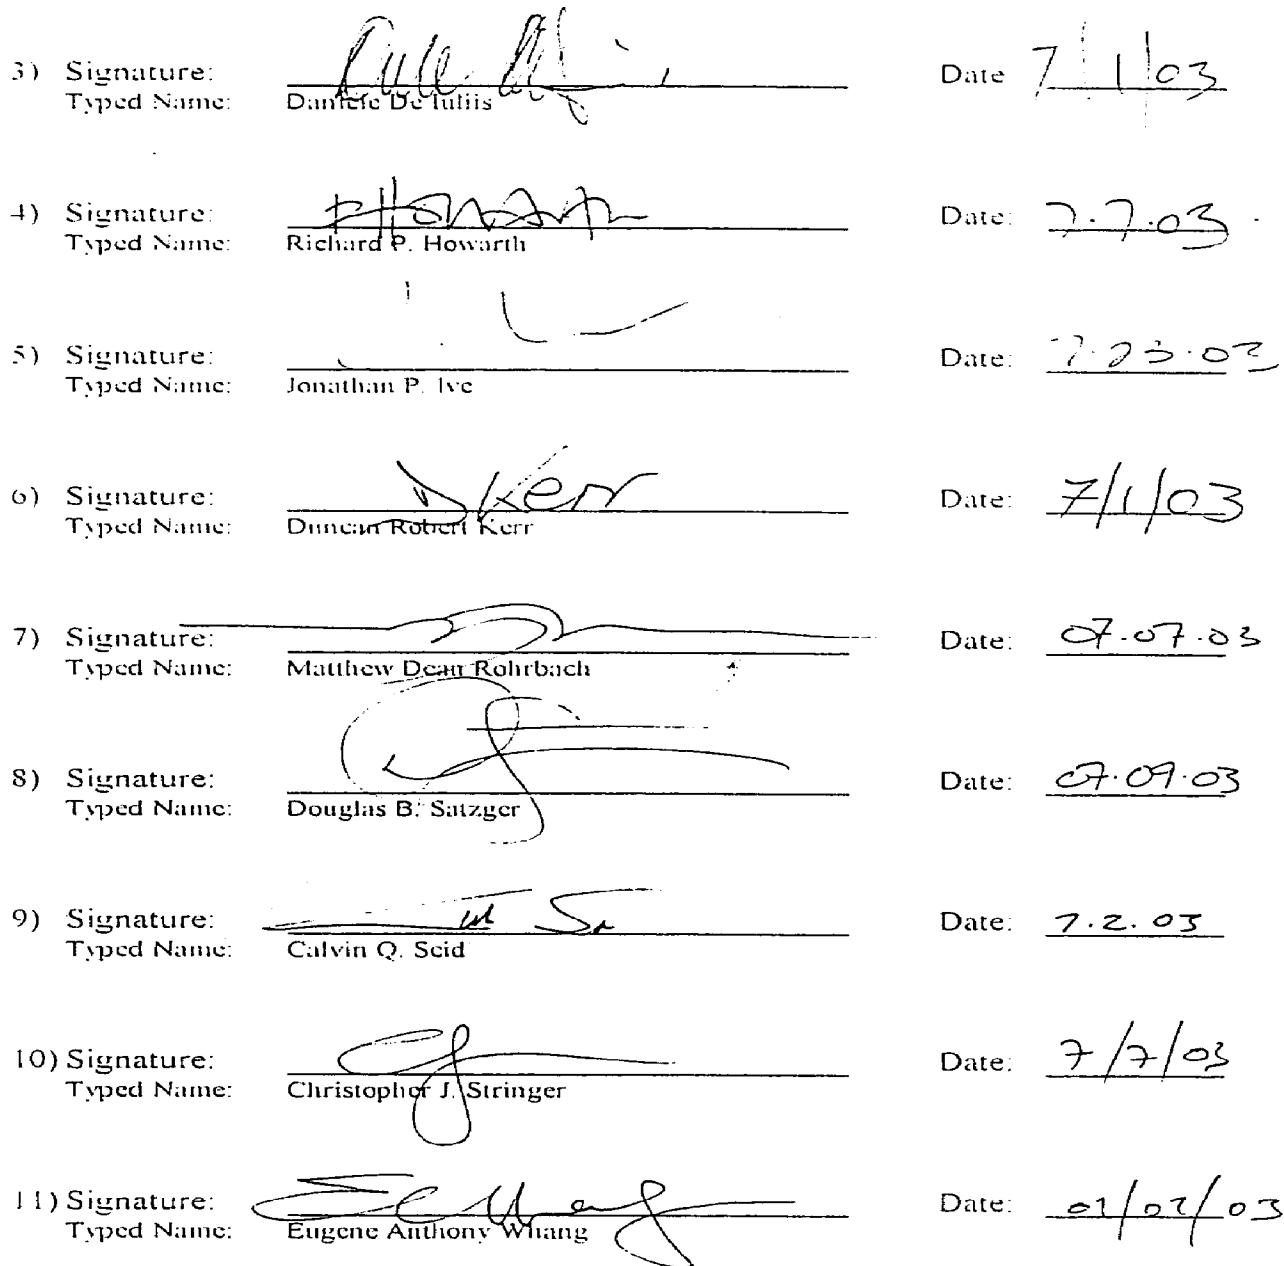 3) Signature: Date 7/1/03
Typed Name: Daniele De Iuliis
4) Signature: RHowarth Date: 7.7.03
Typed Name: Richard P. Howarth
5) Signature: Date: 7.23.03
Typed Name: Jonathan P. Ive
6) Signature: DKerr Date: 7/1/03
Typed Name: Duncan Robert Kerr
7) Signature: Date: 07.07.03
Typed Name: Matthew Dean Rohrbach
8) Signature: Date: 07.09.03
Typed Name: Douglas B. Satzger
9) Signature: Date: 7.2.03
Typed Name: Calvin Q. Seid
10) Signature: Date: 7/7/03
Typed Name: Christopher J. Stringer
11) Signature: Date:
Typed Name: Eugene Anthony Whang